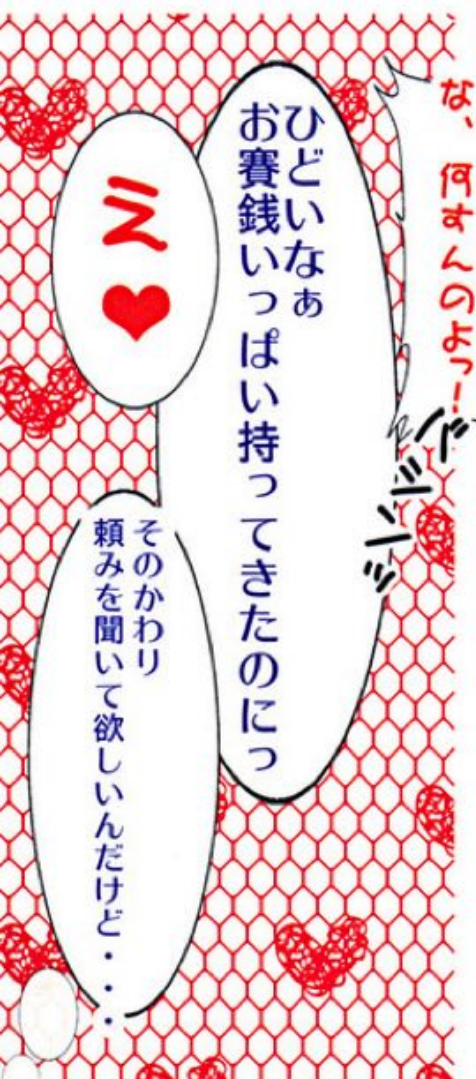 な、何すんのよっ!
バシンッ
ひどいなぁ
お賽銭いっぱい持ってきたのにっ
ミ♥
そのかわり
頼みを聞いて欲しいんだけど・・・